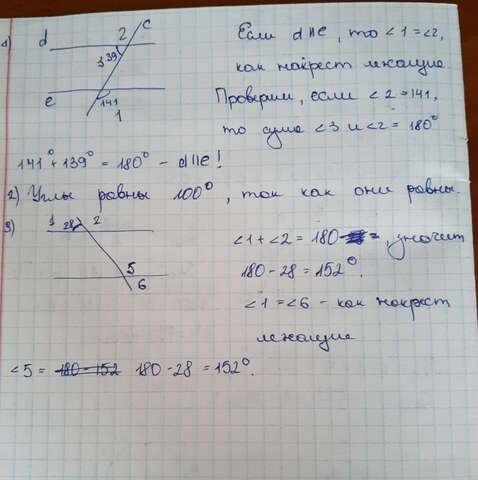 1)
c
d 2
3 39
e 141
1
Если d||е, то ∠1=∠2,
как накрест лежащие.
Проверим, если ∠2=141,
то сума ∠3 и ∠2 = 180°
141° + 139° = 180° - d||е!
2) Углы равны 100°, так как они равны.
3)
1 28 2
5
6
∠1+∠2 = 180 , значит
180-28 = 152°.
∠1=∠6 - как накрест
лежащие
∠5 = 180-152 180-28 = 152°.